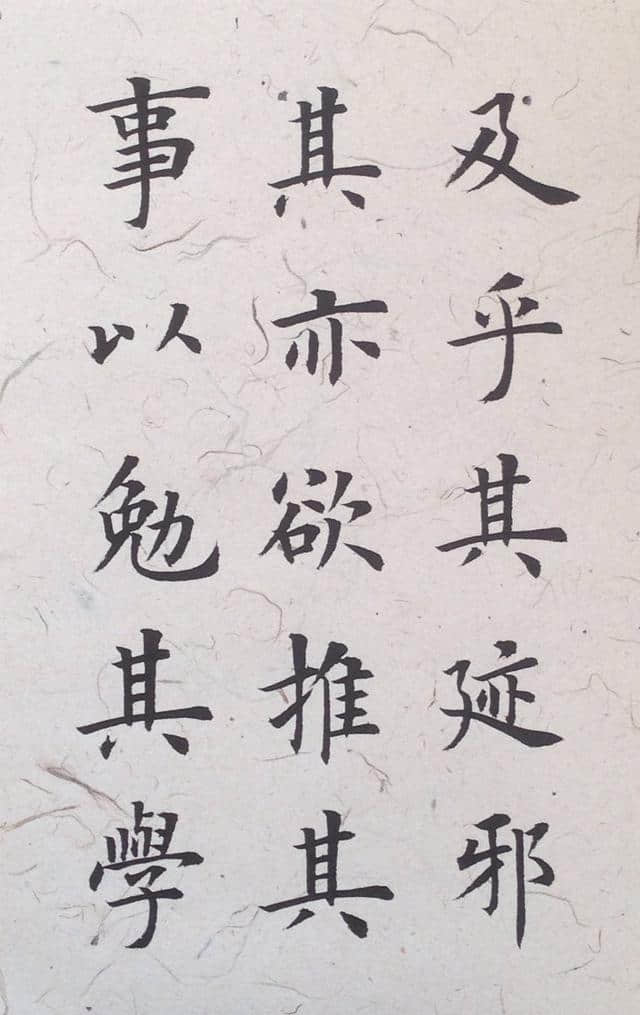 及乎其迹邪
其亦欲推其
事以勉其學